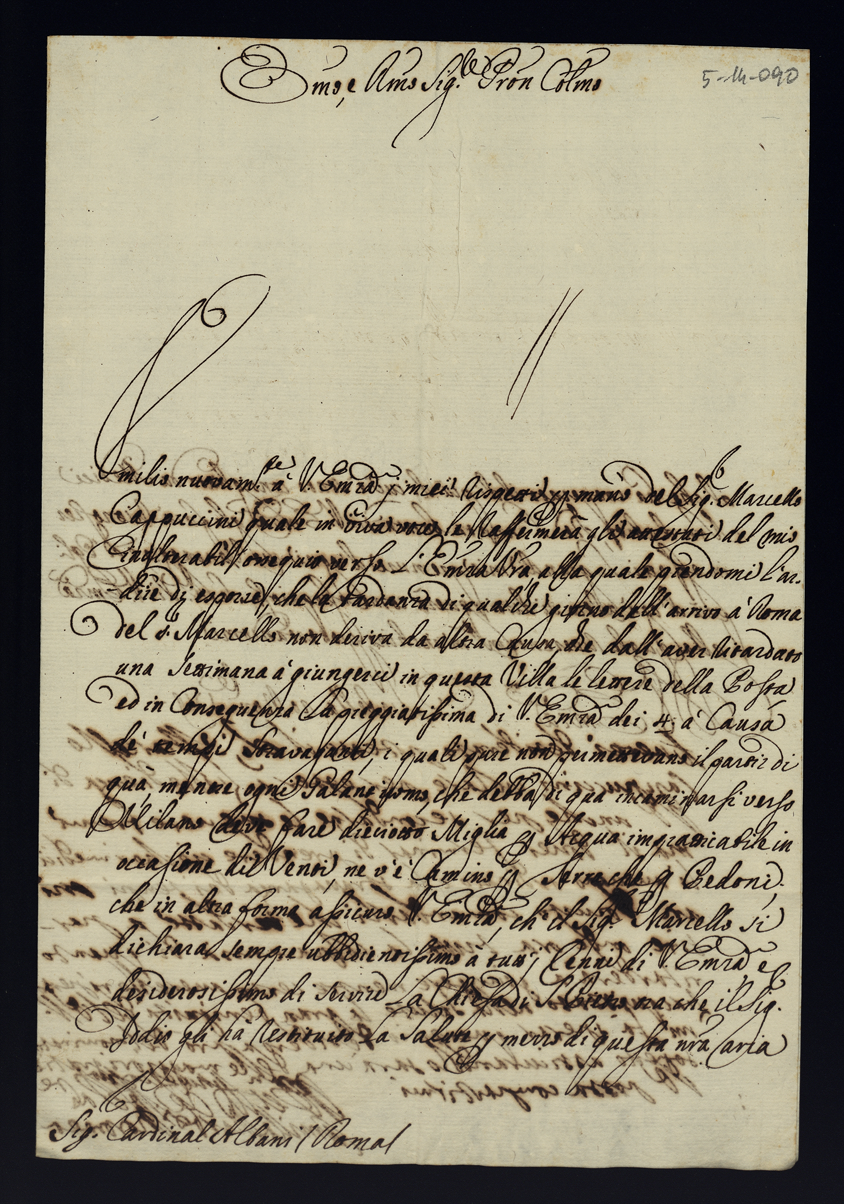 Emo, e Rmo Sig.re Pron Colmo
5-14-090
Umilio nuovam.te à V. Emza j miei rispetti p mano del Sig.r Marcello
Cappuccini quale in viva voce le raffumerà gli attestati del mio
inviolerabil ossequio verso L'Emza Vra alla quale prendomi l'ar-
-dire di esporre, che la tardanza di qualche giorno dell'arrivo à Roma
del S.r Marcello non deriva da altra causa, che dall'aver ritardato
una settimana à giungerci in questa Villa le lettere della Posta
ed in conseguenza la preggiatissima di V. Emza dei 4. à causa
de' tempi stravaganti, i quali pure non permettevano il partir di
quà, mentre ogni Galant'uomo, che debba di quà incaminarsi verso
Milano deve fare dieciotto Miglia p Acqua impraticabile in
occasione di Venti, ne v'è Camino p Terra che p Pedoni,
che in altra forma assicuro V. Emza, ch'il Sig.r Marcello si
dichiara sempre ubbidientissimo à tutti j Cenni di V. Emza e
desiderosissimo di servire La Chiesa di S. Pietro ora che il Sig.
Iddio gli ha restituito La Salute p mezzo di questa nra aria
Sig. Cardinal Albani (Roma)